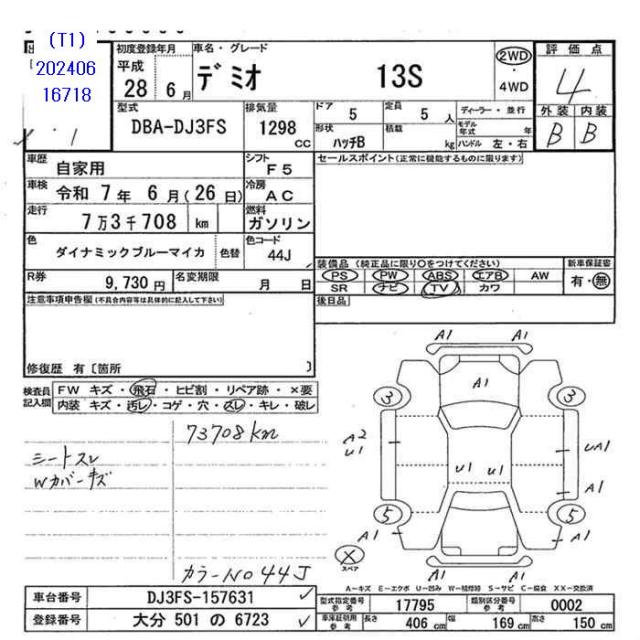 (T1)
202406
16718
初度登録年月
平成
28 6 月
車名・グレード
デミオ 13S
2WD
・
4WD
評価点
4
外装 内装
B B
型式
DBA-DJ3FS
排気量
1298
CC
ドア 5
定員 5 人
形状 ハッチB
積載 kg
ディーラー・並行
モデル年式 年
ハンドル 左・右
車歴 自家用
シフト F5
車検 令和 7 年 6 月(26 日)
冷房 AC
走行 7万3千708 km
燃料 ガソリン
色 ダイナミックブルーマイカ
色替
色コード 44J
R券 9,730 円
名変期限 月 日
セールスポイント(正常に機能するものに限ります)
装備品(純正品に限り○をつけてください)
PS PW ABS エアB AW
SR ナビ TV カワ
新車保証書
有・無
後日品
注意事項申告欄(不具合内容等は具体的に記入して下さい)
修復歴 有〔箇所 〕
検査員
記入欄
FW キズ・飛石・ヒビ割・リペア跡・×要
内装 キズ・汚レ・コゲ・穴・スレ・キレ・破レ
73708km
シートスレ
Wカバーキズ
カラーNo 44J
A1 A1
A1
3 3
A2
U1
UA1
U1 U1
A1
5 5
A1 A1
×
スペア
A1 A1
A−キズ E−エクボ U−凹み W−補修跡 S−サビ C−腐食 XX−交換済
車台番号 DJ3FS-157631
登録番号 大分 501 の 6723
型式指定番号
参考
17795
類別区分番号
参考
0002
車庫証明用
参考
長さ 406 cm
幅 169 cm
高さ 150 cm